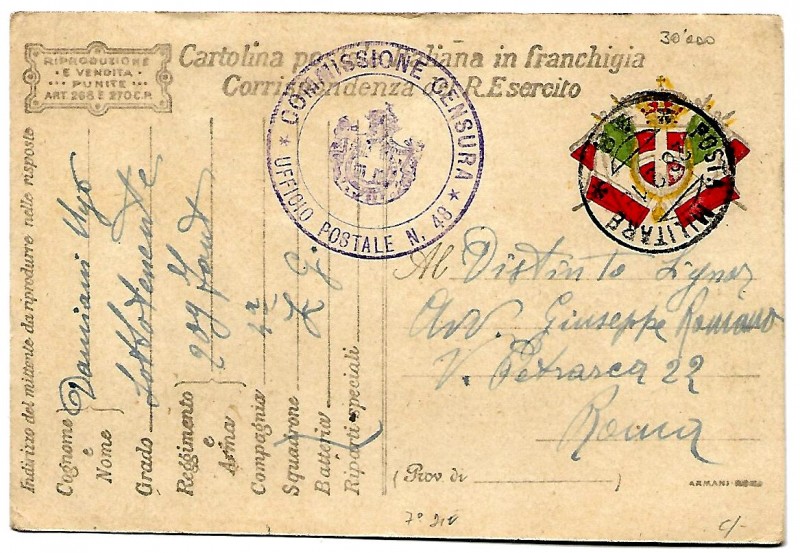 30ª
RIPRODUZIONE
E VENDITA
PUNITE
ART. 268 E 270 C.P.
Cartolina postale italiana in franchigia
Corrispondenza del R. Esercito
COMMISSIONE CENSURA
UFFICIO POSTALE N. 48
POSTA MILITARE
48
Indirizzo del mittente da riprodurre nelle risposte
Cognome e Nome Damiani Ugo
Grado Sottotenente
Reggimento e Arma 209 Fant
Compagnia 
Squadrone
Batteria
Riparti speciali
Al Distinto Signor
Avv. Giuseppe Romano
V. Petrarca 22
Roma
(Prov. di )
ARMANI-ROMA
7ª
c/-